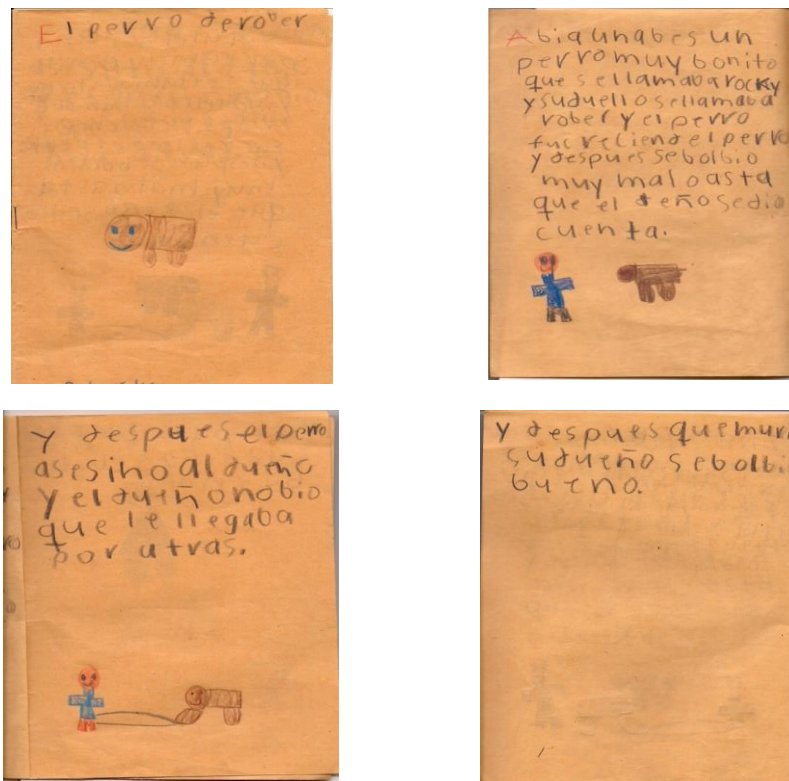 El perro derober
Abia unabes un
perro muy bonito
que sellamaba rocky
y suduello sellamaba
rober y el perro
fue creciendel perro
y despues sebolbio
muy malo asta
que el deño sedio
cuenta.
y despues el perro
asesino al dueño
y el dueño nobio
que le llegaba
por atras.
y despues quemur
su dueño sebolbi
bueno.